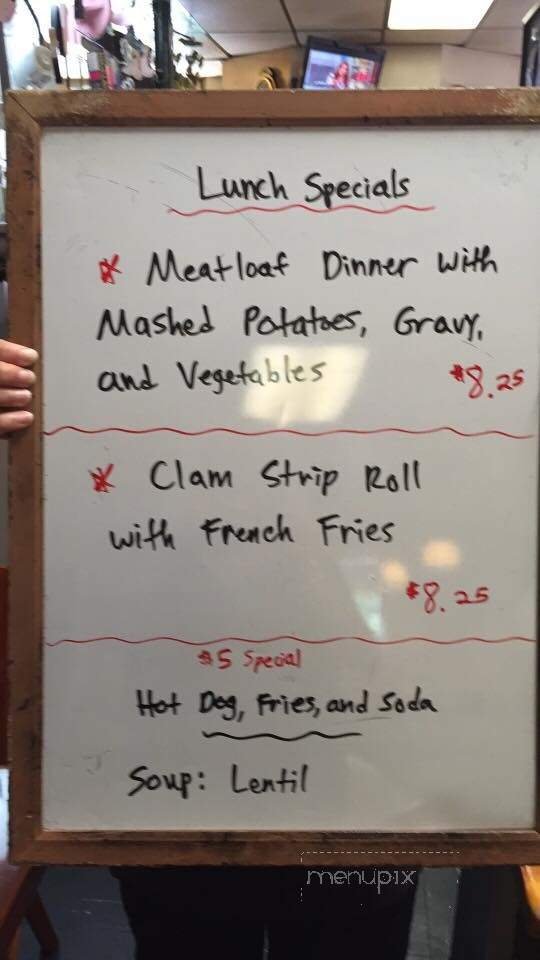 Lunch Specials
* Meatloaf Dinner with
Mashed Potatoes, Gravy,
and Vegetables $8.25
* Clam Strip Roll
with French Fries
$8.25
$5 Special
Hot Dog, Fries, and Soda
Soup: Lentil
menupix